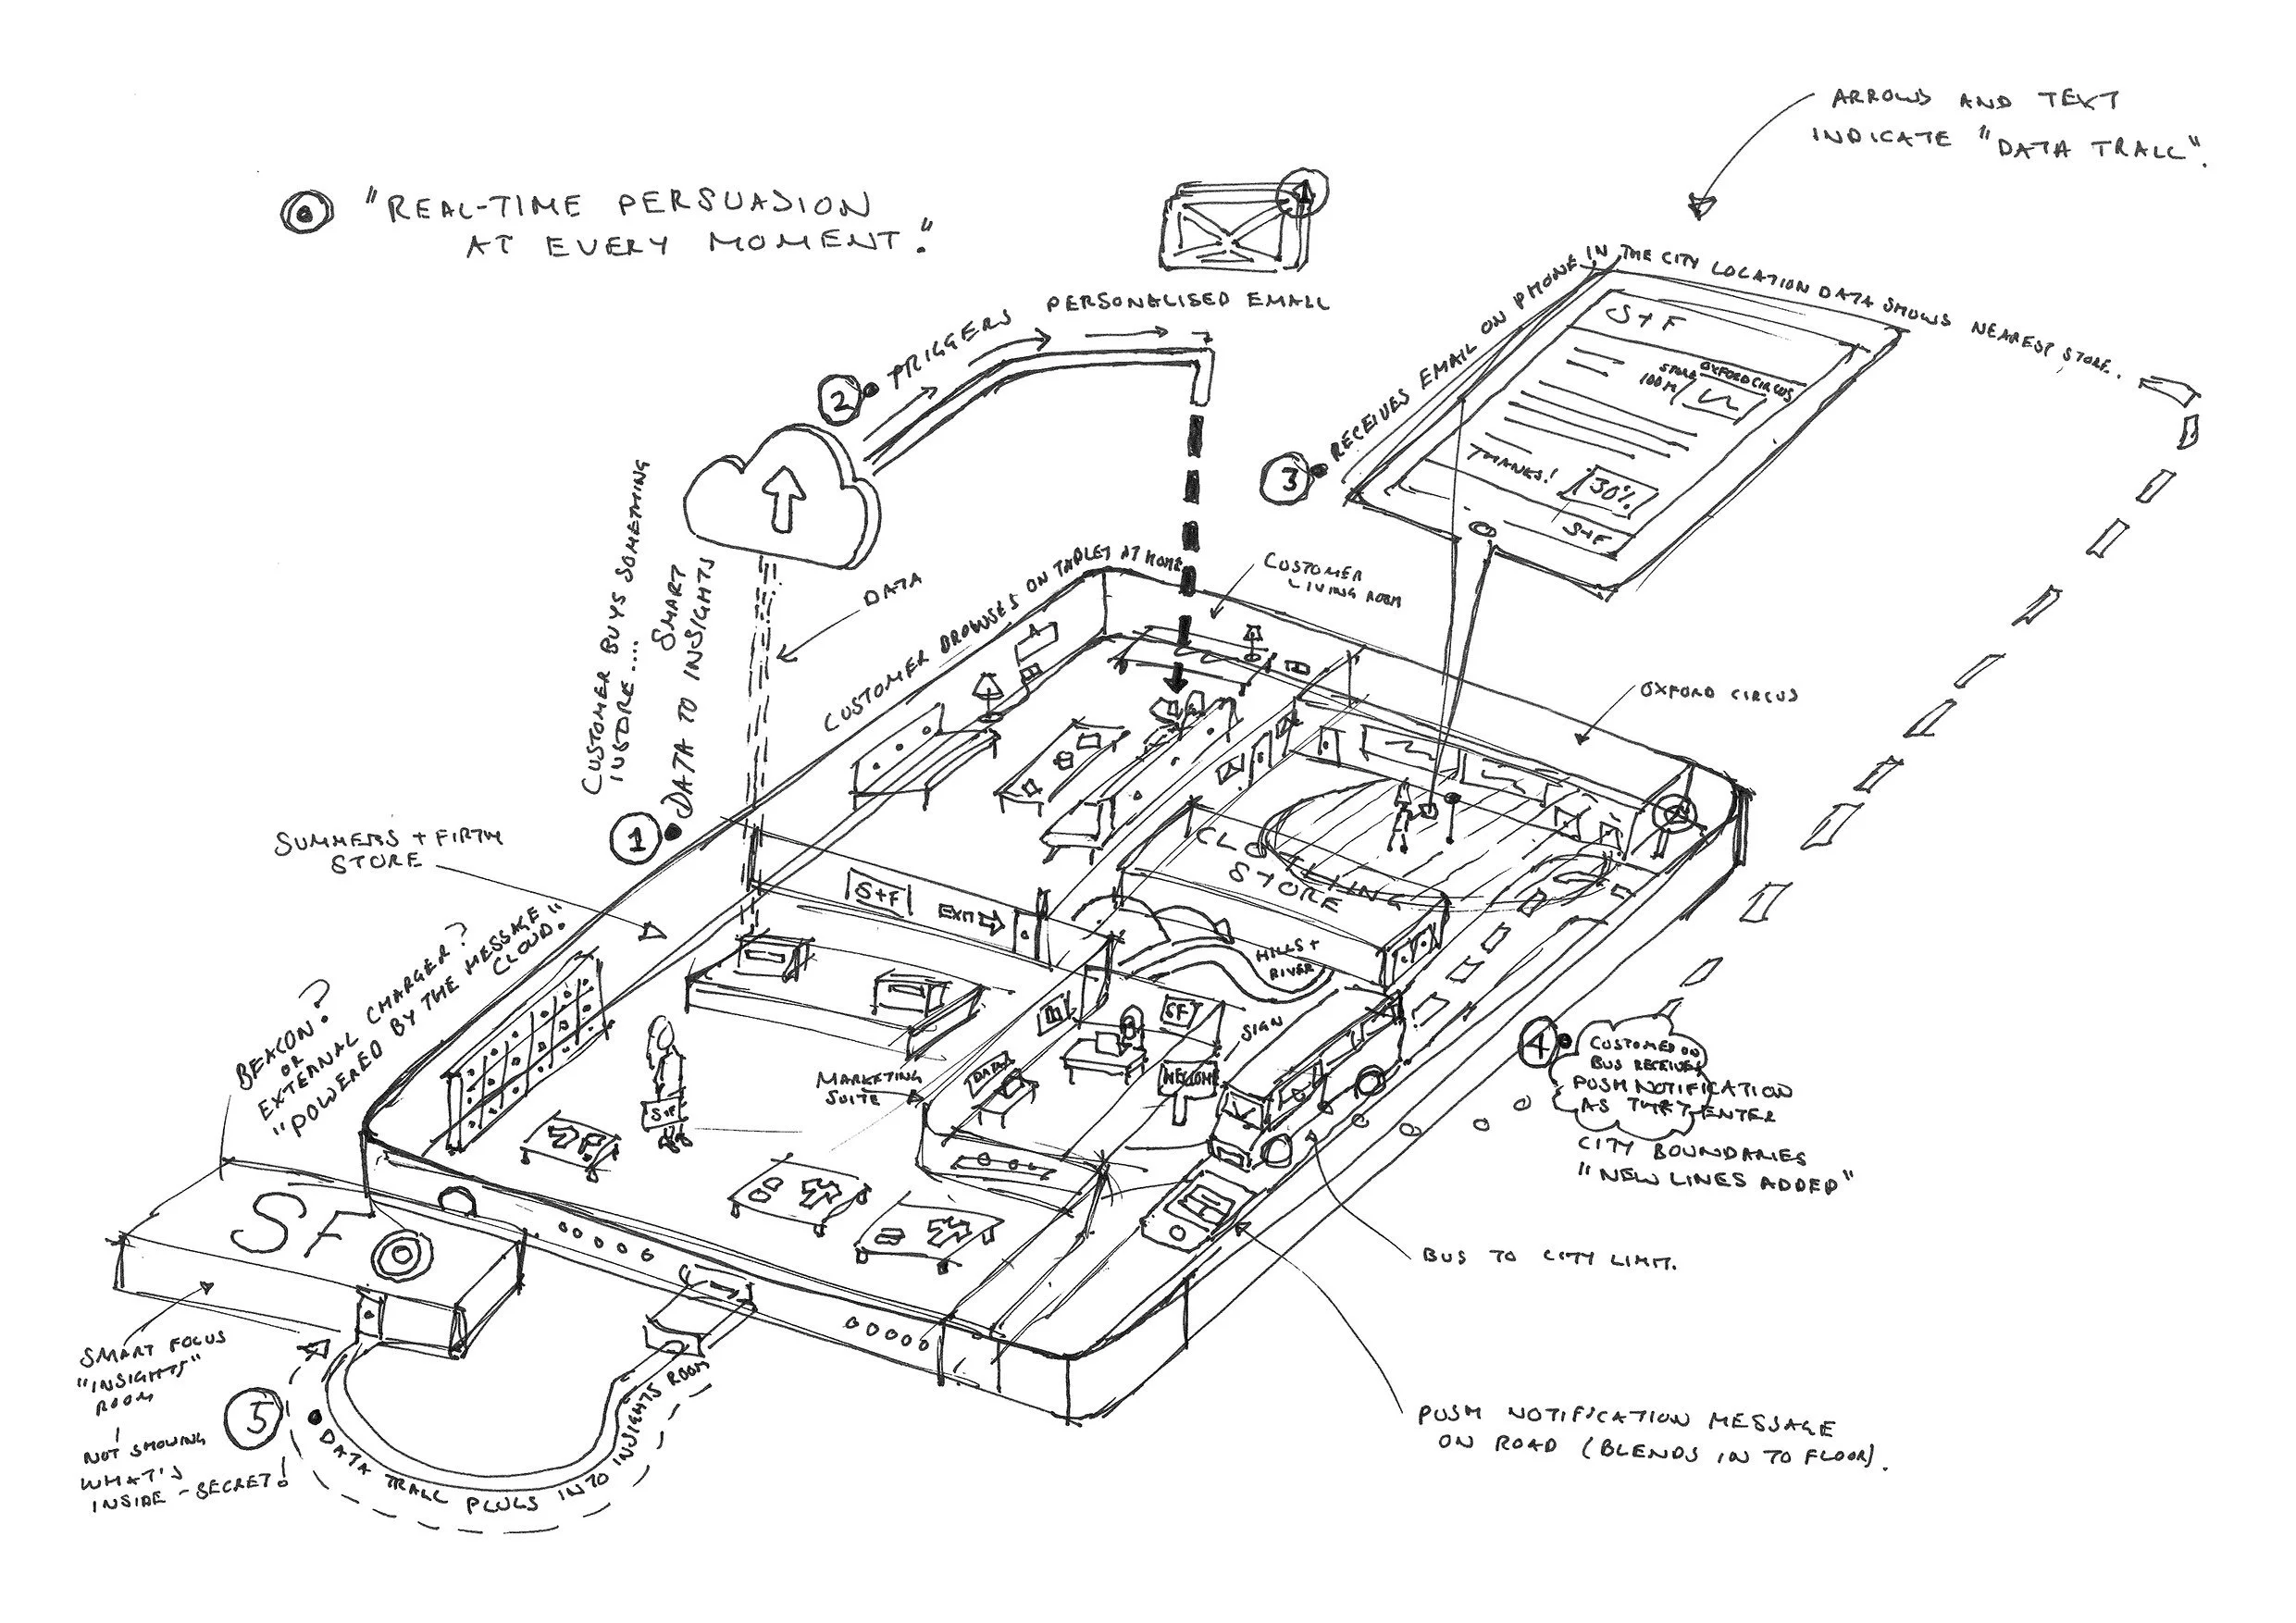 "REAL-TIME PERSUASION
AT EVERY MOMENT."
ARROWS AND TEXT
INDICATE "DATA TRAIL".
1
PERSONALISED EMAIL
2
TRIGGERS
3
RECEIVES EMAIL ON PHONE IN THE CITY LOCATION DATA SHOWS NEAREST STORE..
S+F
STORE
100M
OXFORD CIRCUS
THANKS!
30%
S+F
CUSTOMER BUYS SOMETHING
INSTORE....
1
SMART
DATA TO INSIGHTS
DATA
CUSTOMER BROWSES ON TABLET AT HOME
CUSTOMER
LIVING ROOM
OXFORD CIRCUS
SUMMERS + FIRTH
STORE
S+F
EXIT
CLOTHING
STORE
HILLS +
RIVER
SIGN
SF
DATA
WELCOME
MARKETING
SUITE
S+F
BEACON?
OR
EXTERNAL CHARGER?
"POWERED BY THE MESSAGE
CLOUD."
4
CUSTOMER ON
BUS RECEIVES
PUSH NOTIFICATION
AS THEY ENTER
CITY BOUNDARIES
"NEW LINES ADDED"
BUS TO CITY LIMIT.
PUSH NOTIFICATION MESSAGE
ON ROAD (BLENDS IN TO FLOOR).
SF
SMART FOCUS
"INSIGHTS"
ROOM
NOT SHOWING
WHAT'S
INSIDE - SECRET!
5
DATA TRAIL PLUGS INTO INSIGHTS ROOM